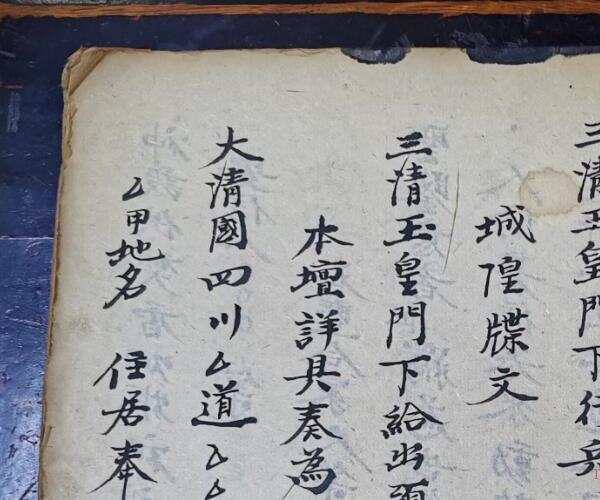 三清玉皇門下行
城隍牒文
三清玉皇門下給出
本壇詳具奏為
大清國四川厶道厶厶
厶甲地名 住居奉